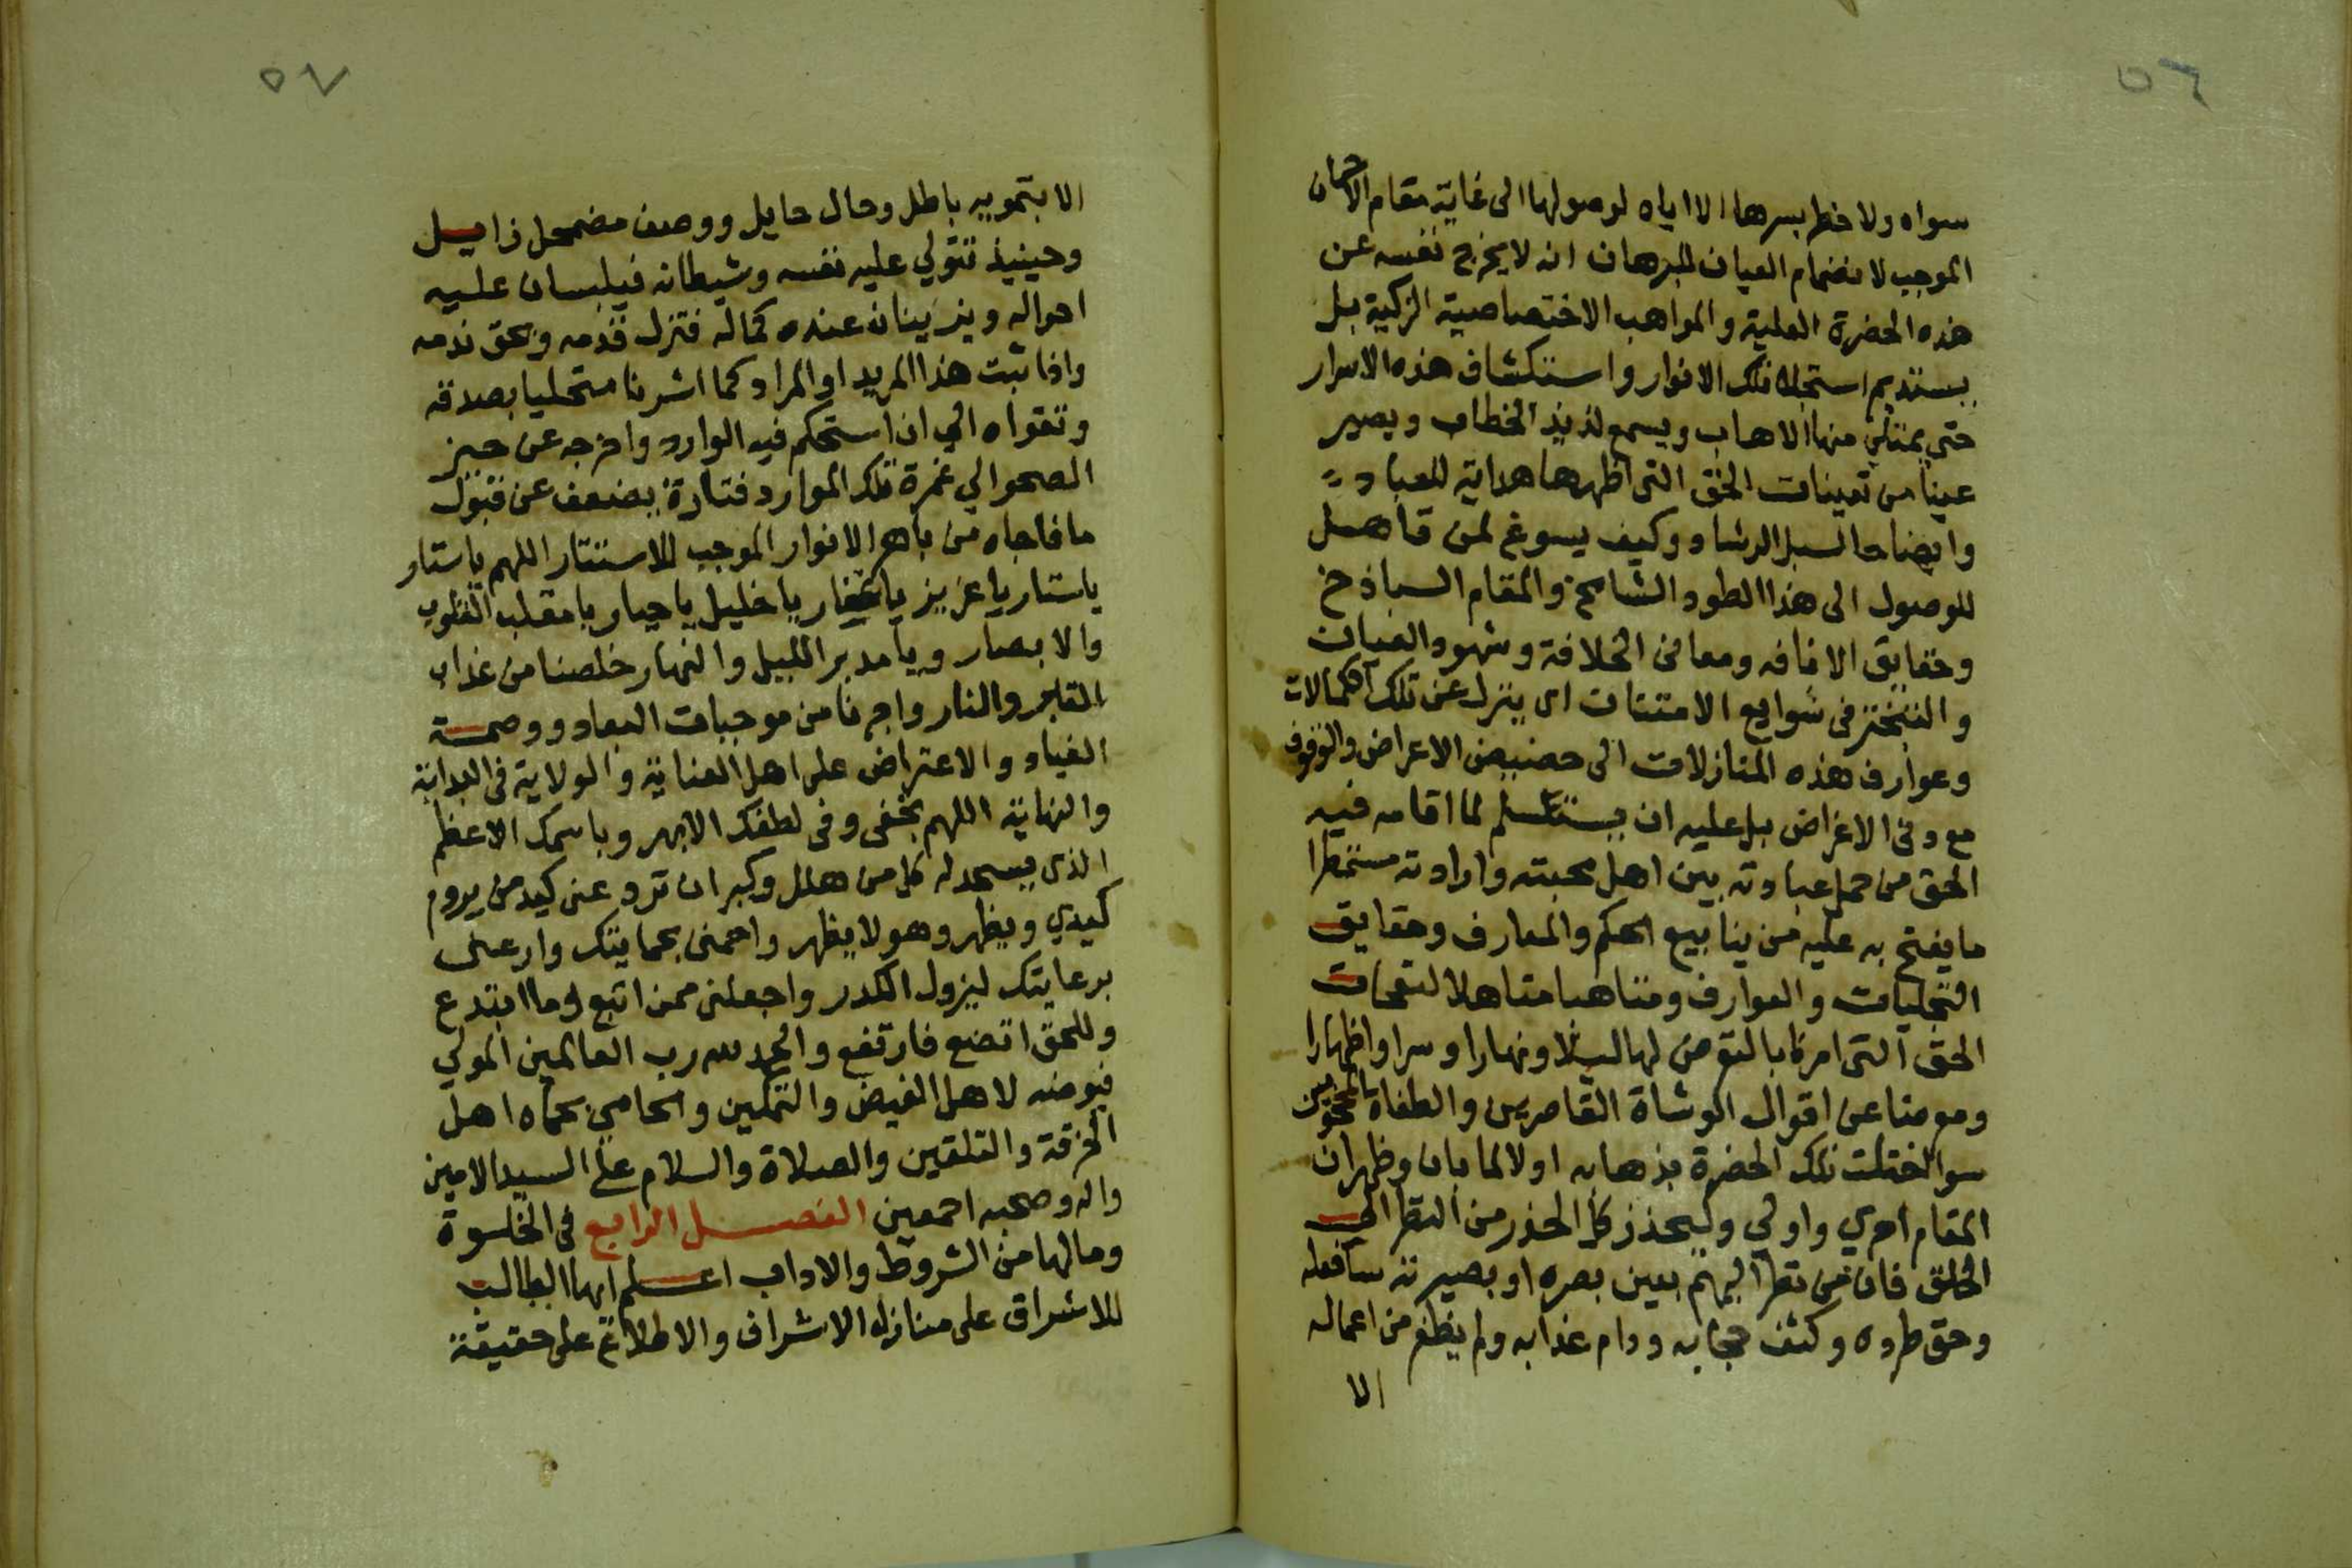 ٥٦
سواه ولا خطر بسرها الا اياه لوصولها الى غاية مقام الاحسان
الموجب لانضمام العيان للبرهان ان لا يخرج نفسه عن
هذه الحضرة العلية والمواهب الاختصاصية الزكية بل
يستديم استجلاء تلك الانوار واستكشاف هذه الاسرار
حتى يمتلي منها الاهاب ويسمع لذيذ الخطاب ويصير
عينا من تعينات الحق التي اظهرها هداية للعباد
وايضاحا لسبل الرشاد وكيف يسوغ لمن تاهل
للوصول الى هذا الطود الشامخ والمقام الباذخ
وحقايق الاضافه ومعاني الخلافة وشهود العيان
والتبختر في شوايع الامتنان ان ينزل عن تلك الكمالات
وعوارف هذه المنازلات الى حضيض الاعراض والوقوف
مع وفي الاغراض بل عليه ان يستسلم لما اقامه فيه
الحق من حمل عبادته بين اهل محبته وارادته مستمطرا
ما يفتح به عليه من ينابيع الحكم والمعارف وحقايق
التجليات والعوارف ومتاهبا متاهلا لنفحات
الحق التي امرنا بالتعرض لها ليلا ونهارا وسرا واظهارا
ومعرضا عن اقوال الوشاة القاصرين والطغاة المحجوبين
سوا اختلت تلك الحضرة بذهابه اولا لما بان وظهر ان
المقام احري واولي وليحذر كل الحذر من النظر الى
الخلق فان من نظر اليهم بعين بصره او بصيرته سا فعله
وحق طرده وكثف حجابه ودام عذابه ولم يظفر من اعماله
الا
٥٧
الا بتمويه باطل وحال حايل ووصف مضمحل زايل
وحينيذ تتولي عليه نفسه وشيطانه فيلبسان عليه
احواله ويزينان عنده كماله فتزل قدمه ويحق ندمه
واذا ثبت هذا المريد او المراد كما اشرنا متحليا بصدقه
وتقواه الي ان استحكم فيه الوارد واخرجه عن حيز
الصحو الي غمرة تلك الموارد فتارة يضعف عن قبول
ما فاجاه من باهر الانوار الموجب للاستتار اللهم يا ستار
يا ستار يا عزيز يا غفار يا خليل يا جبار يا مقلب القلوب
والابصار ويا مدبر الليل والنهار خلصنا من عذاب
المقابر والنار واجرنا من موجبات البعاد ووصمة
العناد والاعتراض على اهل العناية والولاية في البداية
والنهاية اللهم بخفي وفي لطفك الابهر وباسمك الاعظم
الذي يسجد له كل من هلل وكبر ان ترد عني كيد من يروم
كيدي ويظهر وهو لا يظهر واحمني بحمايتك وارعني
برعايتك ليزول الكدر واجعلني ممن اتبع وما ابتدع
وللحق اتضع فارتفع والحمد لله رب العالمين المولي
فيوضه لاهل الفيض والتمكين والحامي بحماه اهل
الخرقة والتلقين والصلاة والسلام على السيد الامين
واله وصحبه اجمعين الفصل الرابع في الخلوة
وما لها من الشروط والاداب اعلم ايها الطالب
للاشراق على منازل الاشراف والاطلاع على حقيقة